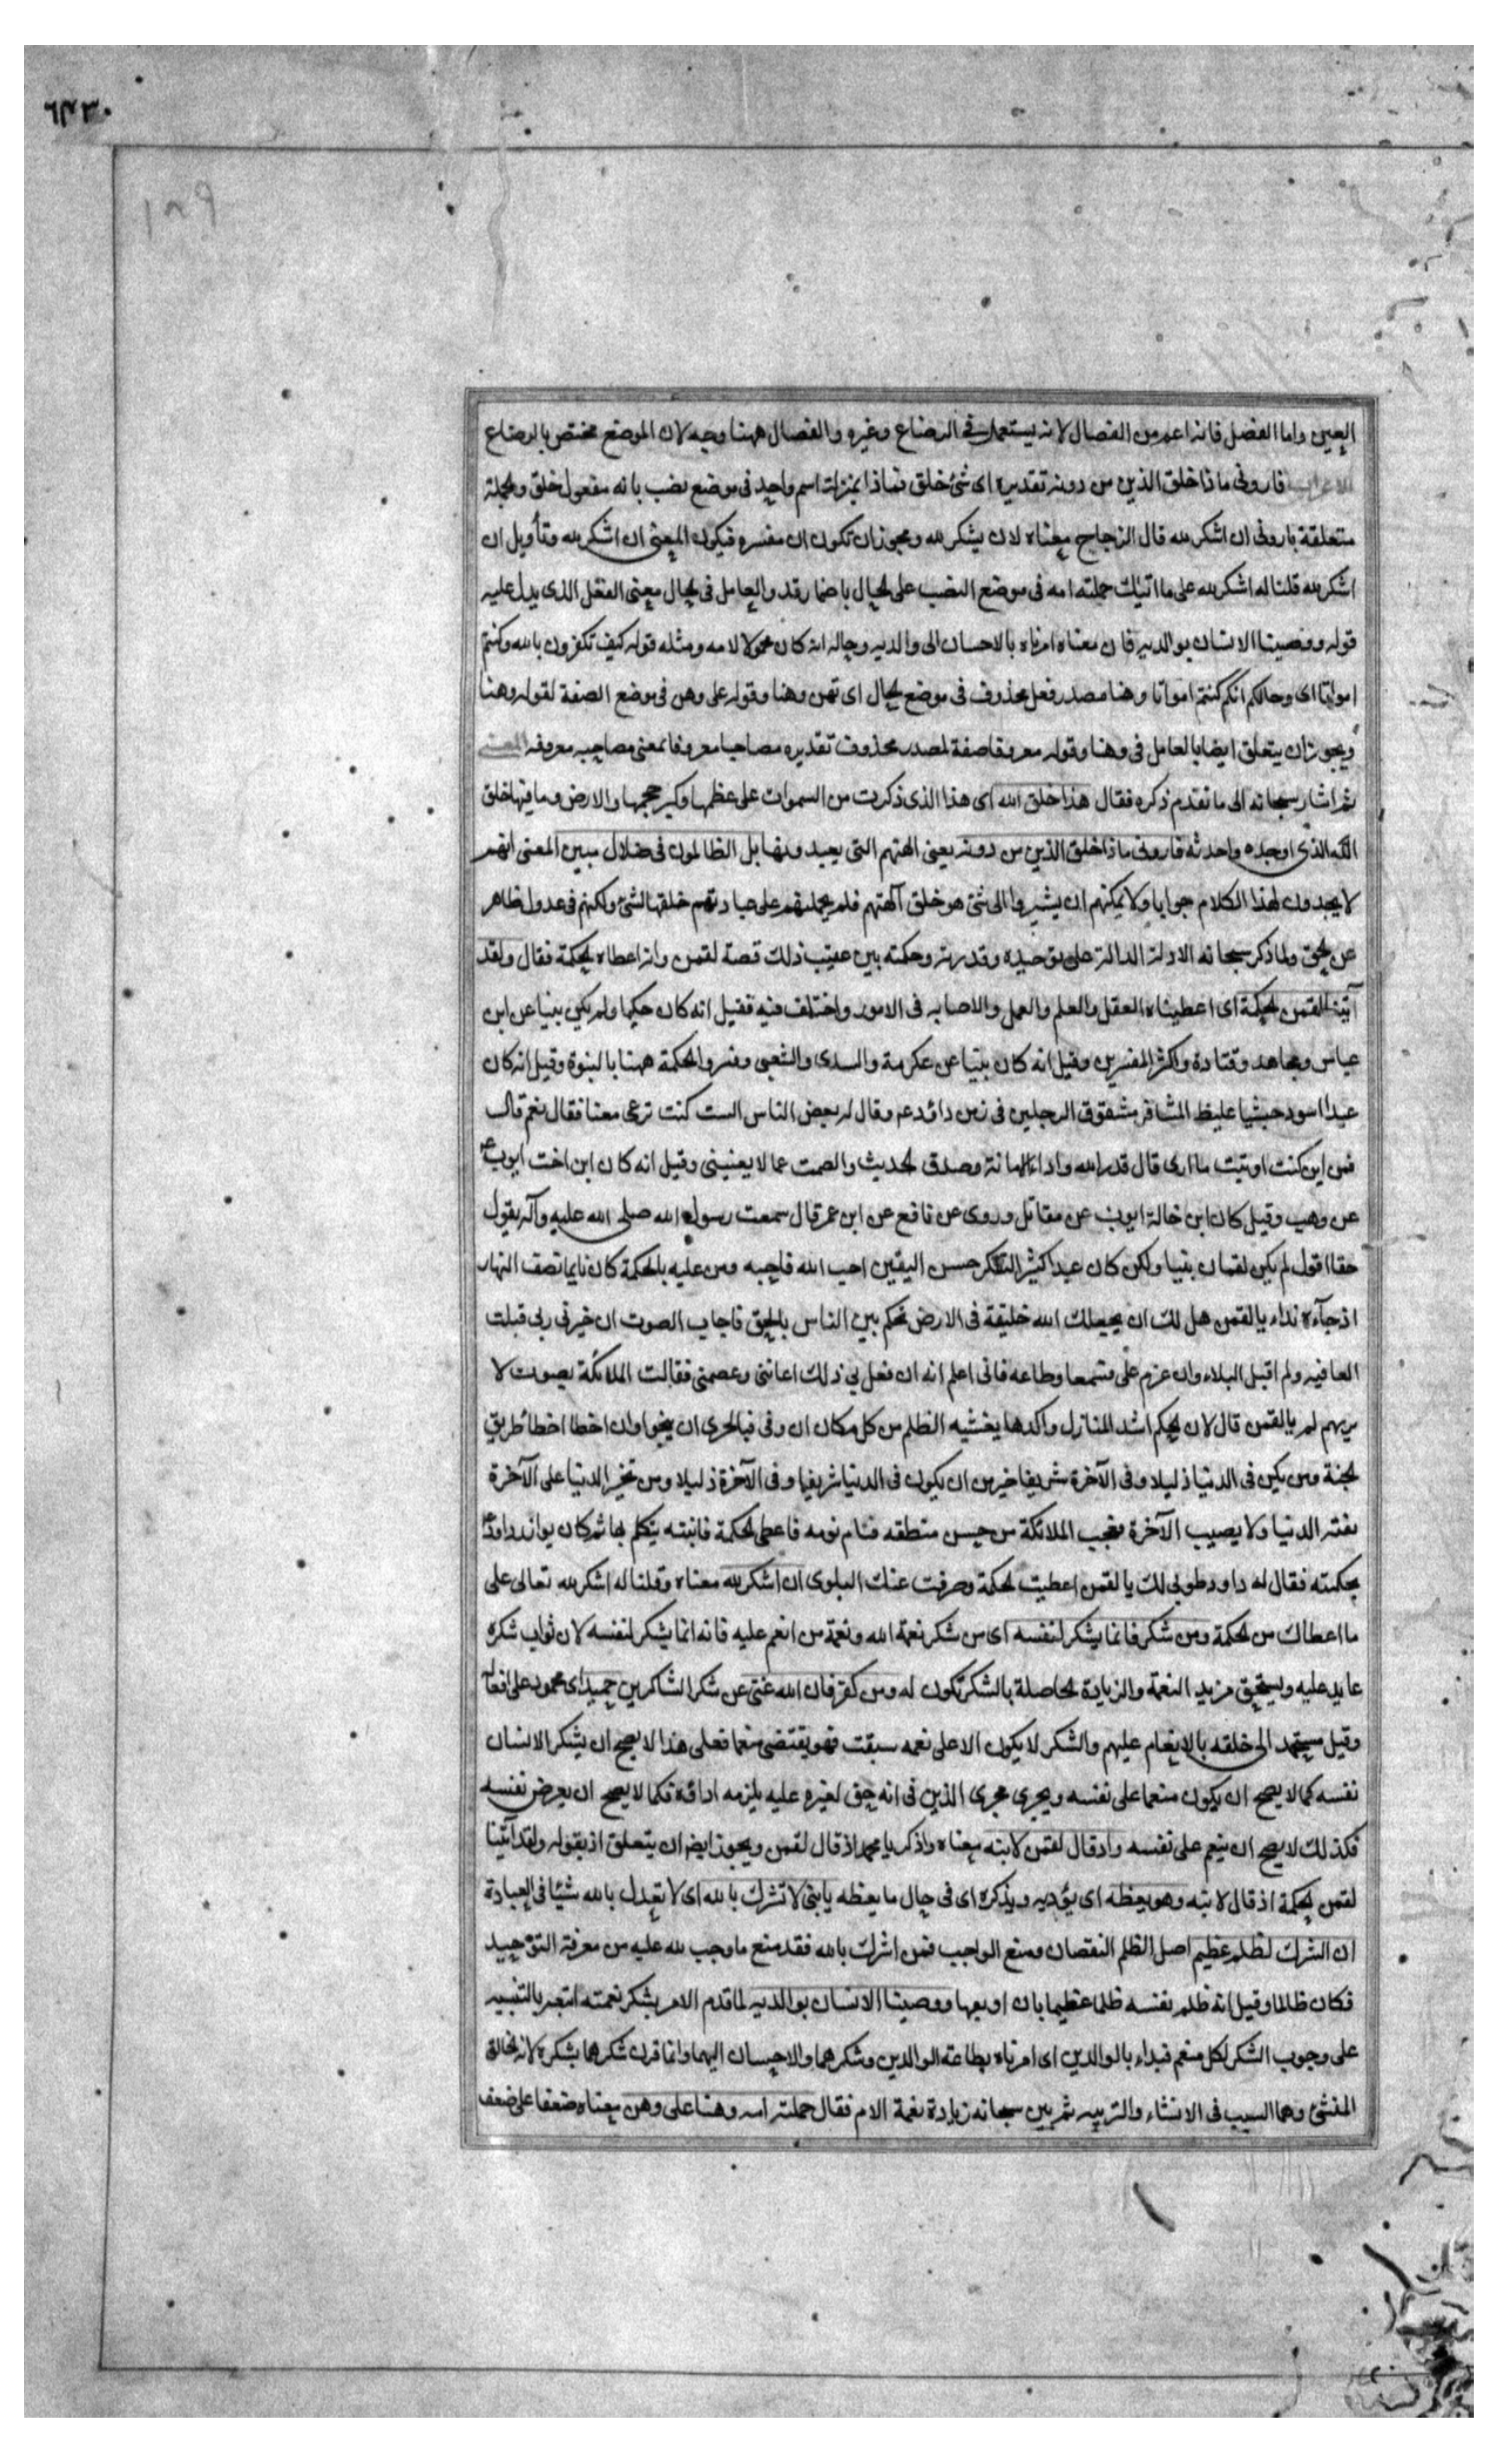 ٦٣٣٠
١٨٩
العين واما الفصل فانه اعم من الفصال لانه يستعمل في الرضاع وغيره والفصال ههنا وجه لان الموضع مختص بالرضاع
الاعراب فاروني ماذا خلق الذين من دونه تقديره اى شئ خلق فماذا بمنزلة اسم واحد فى موضع نصب بانه مفعول خلق والجملة
متعلقة باروني ان اشكر لله قال الزجاج معناه لان يشكر لله ويجوز ان تكون ان مفسره فيكون المعنى ان اشكر لله وتأويل ان
اشكر لله قلنا له اشكر لله على ما اتيتك حملته امه فى موضع النصب على الحال باضمار قد والعامل فى الحال معنى الفعل الذى يدل عليه
قوله ووصينا الانسان بوالديه فان معناه امرناه بالاحسان الى والديه وحاله انه كان محمولا لامه ومثله قوله كيف تكفرون بالله وكنتم
امواتا اى وحالكم انكم كنتم امواتا وهنا مصدر فعل محذوف فى موضع الحال اى تهن وهنا وقوله على وهن فى موضع الصفة لقوله وهنا
ويجوز ان يتعلق ايضا بالعامل فى وهنا وقوله معروفا صفة لمصدر محذوف تقديره مصاحبا معروفا بمعنى مصاحبه معروفه المعنى
ثم اشار سبحانه الى ما تقدم ذكره فقال هذا خلق الله اى هذا الذى ذكرت من السموات على عظمها وكبر حجمها والارض وما فيها خلق
الله الذى اوجده واحدثه فاروني ماذا خلق الذين من دونه يعنى الهتهم التى يعبدونها بل الظالمون فى ضلال مبين المعنى انهم
لا يجدون لهذا الكلام جوابا ولا يمكنهم ان يشيروا الى شئ هو خلق آلهتهم فلم يحملهم على عبادتهم خلقها الشئ ولكنهم فى عدول ظاهر
عن الحق ولما ذكر سبحانه الادلة الدالة على توحيده وقدرته وحكمته بين عقيب ذلك قصة لقمن وانه اعطاه الحكمة فقال ولقد
آتينا لقمن الحكمة اى اعطيناه العقل والعلم والعمل والاصابه فى الامور واختلف فيه فقيل انه كان حكيما ولم يكن نبيا عن ابن
عباس ومجاهد وقتادة واكثر المفسرين وقيل انه كان نبيا عن عكرمة والسدى والشعبى وفسروا الحكمة ههنا بالنبوة وقيل انه كان
عبدا اسود حبشيا غليظ المشافر مشقوق الرجلين فى زمن داود عم وقال له بعض الناس الست كنت ترعى معنا فقال نعم قال
فمن اين كنت اوتيت ما ارى قال قدر الله واداء الامانة وصدق الحديث والصمت عما لا يعنينى وقيل انه كان ابن اخت ايوب ع
عن وهب وقيل كان ابن خالة ايوب عن مقاتل وروى عن نافع عن ابن عمر قال سمعت رسول الله صلى الله عليه وآله يقول
حقا اقول لم يكن لقمان نبيا ولكن كان عبدا كثير التفكر حسن اليقين احب الله فاحبه ومن عليه بالحكمة كان نايما نصف النهار
اذ جآءه نداء يا لقمن هل لك ان يجعلك الله خليفة فى الارض تحكم بين الناس بالحق فاجاب الصوت ان خيرنى ربى قبلت
العافيه ولم اقبل البلاء وان عزم على فسمعا وطاعه فانى اعلم انه ان فعل بى ذلك اعاننى وعصمنى فقالت الملائكة بصوت لا
يريهم لم يا لقمن قال لان الحكم اشد المنازل واكدها يغشيه الظلم من كل مكان ان وفى فبالحرى ان ينجوا وان اخطا اخطا طريق
الجنة ومن يكن فى الدنيا ذليلا وفى الآخرة شريفا خير من ان يكون فى الدنيا شريفا وفى الآخرة ذليلا ومن تخير الدنيا على الآخرة
تفته الدنيا ولا يصيب الآخرة فعجب الملائكة من حسن منطقه فنام نومه فاعطى الحكمة فانتبه يتكلم بها ثم كان يوازر داود ع
بحكمته فقال له داود طوبى لك يا لقمن اعطيت الحكمة وصرفت عنك البلوى ان اشكر لله معناه وقلنا له اشكر لله تعالى على
ما اعطاك من الحكمة ومن شكر فانما يشكر لنفسه اى من شكر نعمة الله ونعمة من انعم عليه فانه انما يشكر لنفسه لان ثواب شكره
عايد عليه ويستحق مزيد النعمة والزيادة الحاصلة بالشكر تكون له ومن كفر فان الله غنى عن شكر الشاكرين حميد اى محمود على افعاله
وقيل مستحمد الى خلقه بالانعام عليهم والشكر لا يكون الا على نعمه سبقت فهو يقتضى منعما فعلى هذا لا يصح ان يشكر الانسان
نفسه كما لا يصح ان يكون منعما على نفسه ويجرى مجرى الدين فى انه حق لغيره عليه يلزمه اداؤه فكما لا يصح ان يعرض نفسه
فكذلك لا يصح ان ينعم على نفسه واذ قال لقمن لابنه معناه واذكر يا محمد اذ قال لقمن ويجوز ايضا ان يتعلق اذ بقوله ولقد آتينا
لقمن الحكمة اذ قال لابنه وهو يعظه اى يؤدبه ويذكره اى فى حال ما يعظه يا بنى لا تشرك بالله اى لا تعدل بالله شيئا فى العبادة
ان الشرك لظلم عظيم اصل الظلم النقصان ومنع الواجب فمن اشرك بالله فقد منع ما وجب لله عليه من معرفة التوحيد
فكان ظالما وقيل انه ظلم نفسه ظلما عظيما بان اوبقها ووصينا الانسان بوالديه لما قدم الامر بشكر نعمته اتبعه بالتنبيه
على وجوب الشكر لكل منعم فبداء بالوالدين اى امرناه بطاعة الوالدين وشكرهما والاحسان اليهما وانما قرن شكرهما بشكره لانه الخالق
المنشئ وهما السبب فى الانشاء والتربيه ثم بين سبحانه زيادة نعمة الام فقال حملته امه وهنا على وهن معناه ضعفا على ضعف